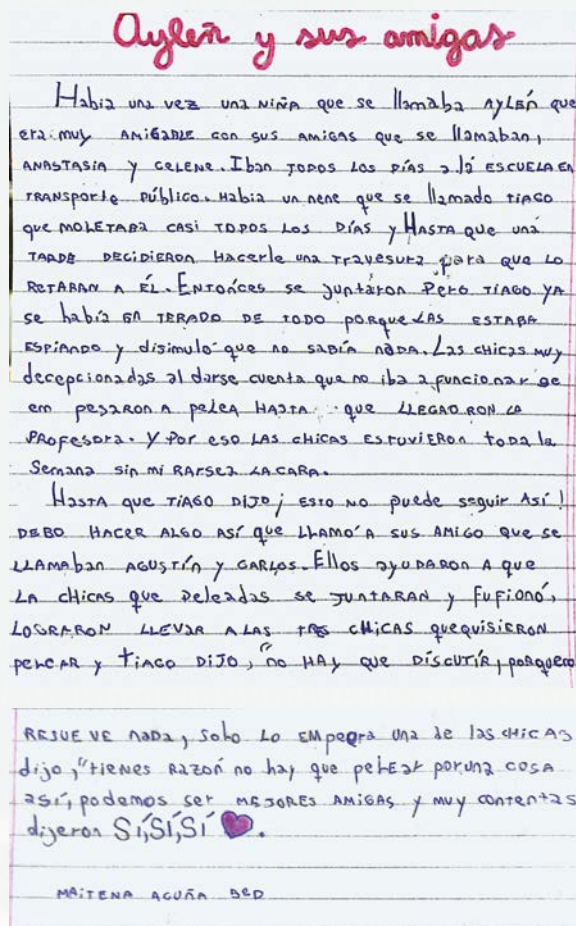 Ayleñ y sus amigas
Habia una vez una NIÑA que se llamaba AYLÉN que
era muy AMIGABLE con sus AMIGAS que se llamaban,
ANASTASIA Y CELENE. Iban TODOS LOS DÍAS a lá ESCUELA EN
TRANSPORTE Público. Habia un nene que se llamado TIAGO
que MOLETABA CASI TODOS LOS DÍAS y HASTA que una
TARDE DECIDIERON HACERLE una Travesura para que LO
RETARAN A ÉL. ENTONCES se juntáron PERO TIAGO YA
se había EN TERADO DE TODO PORQUE LAS ESTABA
ESPIANDO y disimuló que no SABÍA NADA. LAS CHICAS MUY
decepcionadas al darse cuenta que no iba a funcionar se
em pesaron A peLEA HASTA que LLEGADRON LA
PROFESORA. Y POR eso LAS CHICAS ESTUVIERON toda la
Semana sin mi RARSEZ LA CARA.
HASTA que TIAGO DIJO ¡ ESTO NO puede seguir Así !
DEBO HACER ALGO ASí que LLAMÓ A SUS AMIGO que se
LLAMAban AGUSTÍN y CARLOS. Ellos ayuDARON A que
LA CHICAS que peleadas se JUNTARAN y Fufionó,
LOGRARON LLEVAR A LAS TRES CHICAS quequisieron
peLEAR y TIAGO DIJO, "no HAY que DISCUTIR, porqueno
RESUE VE nada, solo Lo EMpeora una de las CHICAS
dijo, "TIENES RAZÓN no hay que peLEAR poruna cosa
así, podemos ser MEJORES AMIGAS y muy contentas
dijeron SÍ, SÍ, SÍ.
MAITENA ACUÑA